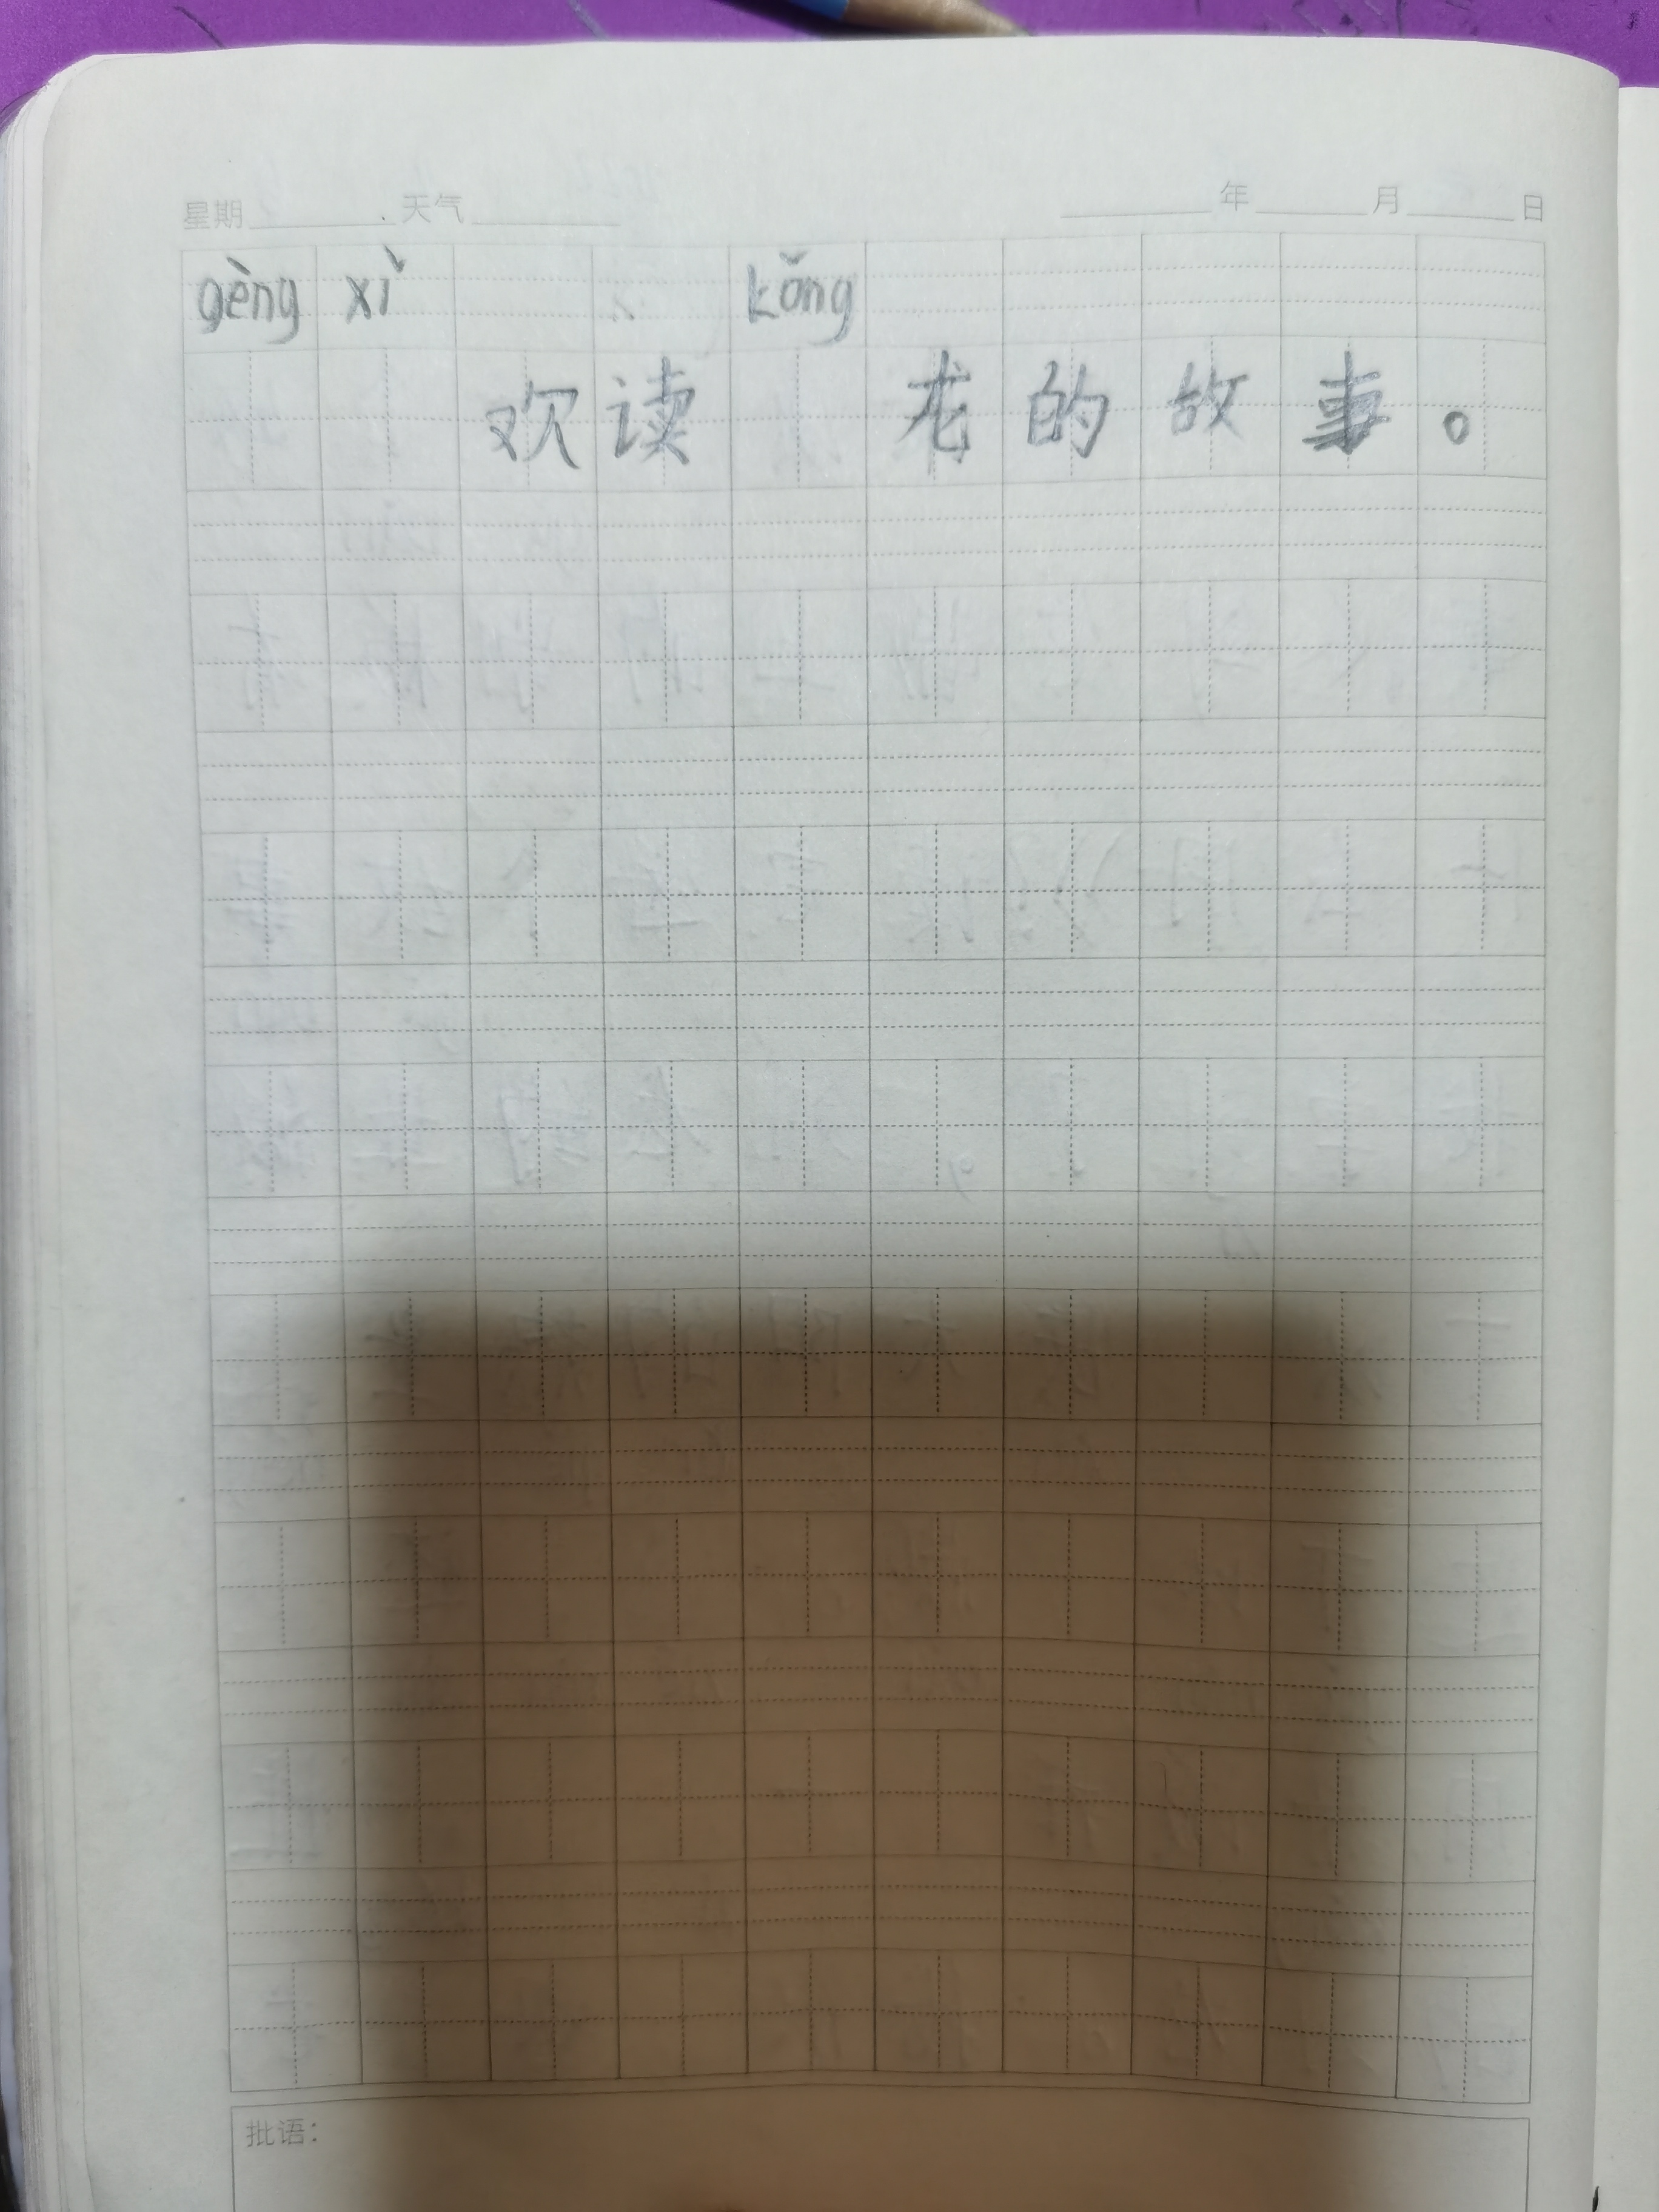 星期 天气 年 月 日
gèng xǐ kǒng
欢读 龙的故事。
批语：